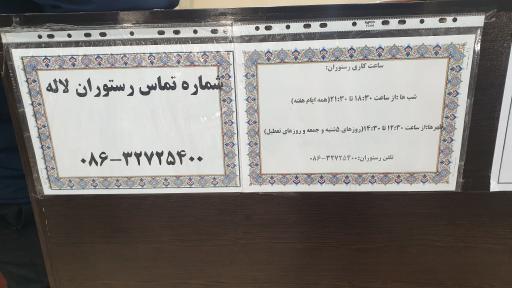 شماره تماس رستوران لاله
۰۸۶-۳۲۷۲۵۴۰۰
ساعت کاری رستوران:
شب ها :از ساعت ۱۸:۳۰ تا ۲۱:۳۰(همه ایام هفته)
ظهرها:از ساعت ۱۲:۳۰ تا ۱۴:۳۰(روزهای ۵شنبه و جمعه و روزهای تعطیل)
تلفن رستوران:۰۸۶-۳۲۷۲۵۴۰۰